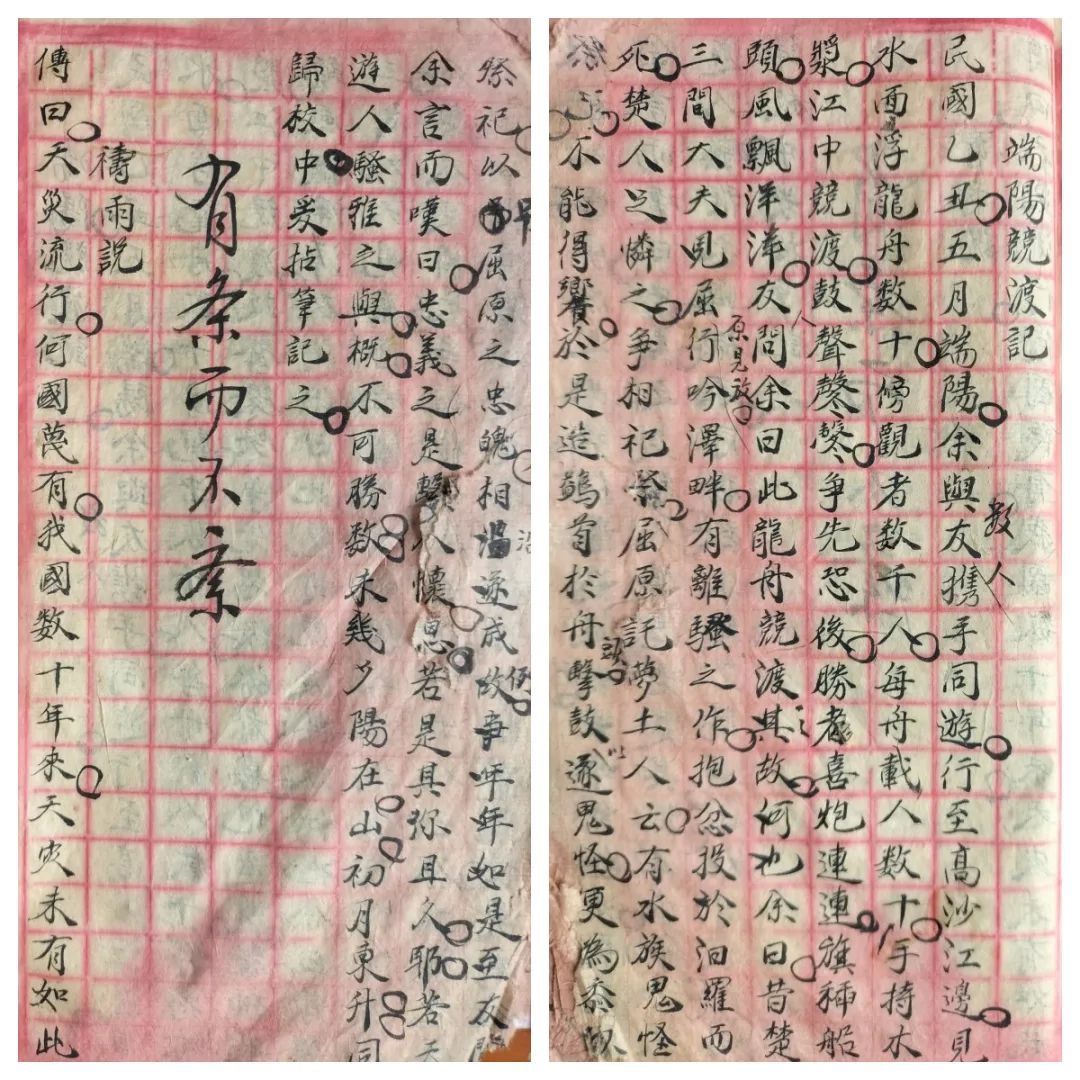 端陽競渡記
民國乙丑五月端陽余與友数人携手同遊行至高沙江邊見
水面浮龍舟数十傍觀者数千人每舟載人数十手持木
槳江中競渡鼓聲鼕鼕争先恐後勝者喜炮連連旗稱船
頭風飄洋洋友人問余曰此龍舟競渡其故何也余曰昔楚
三閭大夫屈原見放行吟澤畔有離騷之作抱忿投於汨羅而
死楚人憐之争相祀祭屈原託夢土人云有水族鬼怪
不能得饗於是造鷁首於舟擊鼓以逐鬼怪更為
祭祀以屈原之忠魄相沿遂成故事年年如是至友
余言而嘆曰忠義之是人懷思若是其弥且久耶若天
遊人騷雅之興概不可勝数未幾夕陽在山初月東升同
歸校中爰拈筆記之
有条而不紊
禱雨説
傳曰天災流行何國蔑有我國数十年來天災未有如此